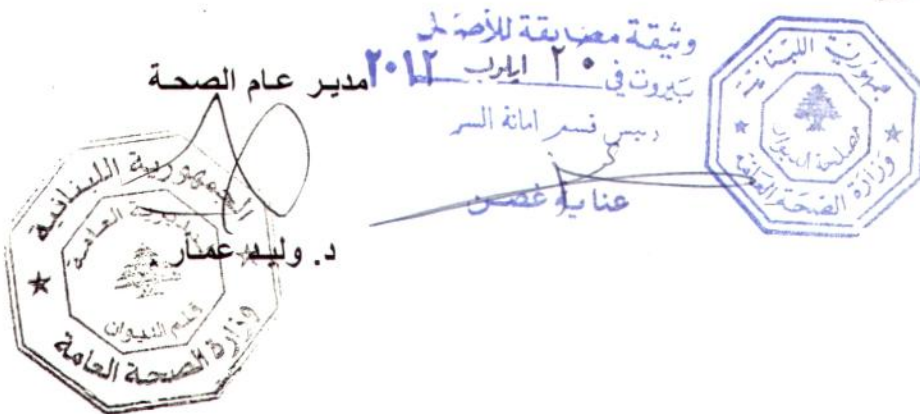 وثيقة مطابقة للأصل
بيروت في ٢٠ ايلول ٢٠١٢
رئيس قسم امانة السر
عناية غصن
الجمهورية اللبنانية
مصلحة الديوان
وزارة الصحة العامة
مدير عام الصحة
د. وليد عمار
الجمهورية اللبنانية
المديرية العامة
قلم الديوان
وزارة الصحة العامة